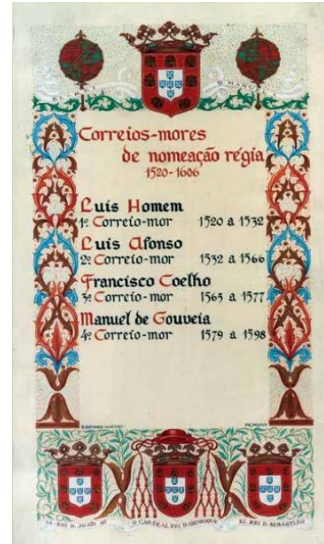 Correios-mores
de nomeação régia
1520-1606
Luis Homem
1º Correio-mor 1520 a 1532
Luis Afonso
2º Correio-mor 1532 a 1566
Francisco Coelho
3º Correio-mor 1565 a 1577
Manuel de Gouveia
4º Correio-mor 1579 a 1598
EL REI D. JOÃO III
O CARDIAL REI D. HENRIQUE
EL REI D. SEBASTIÃO